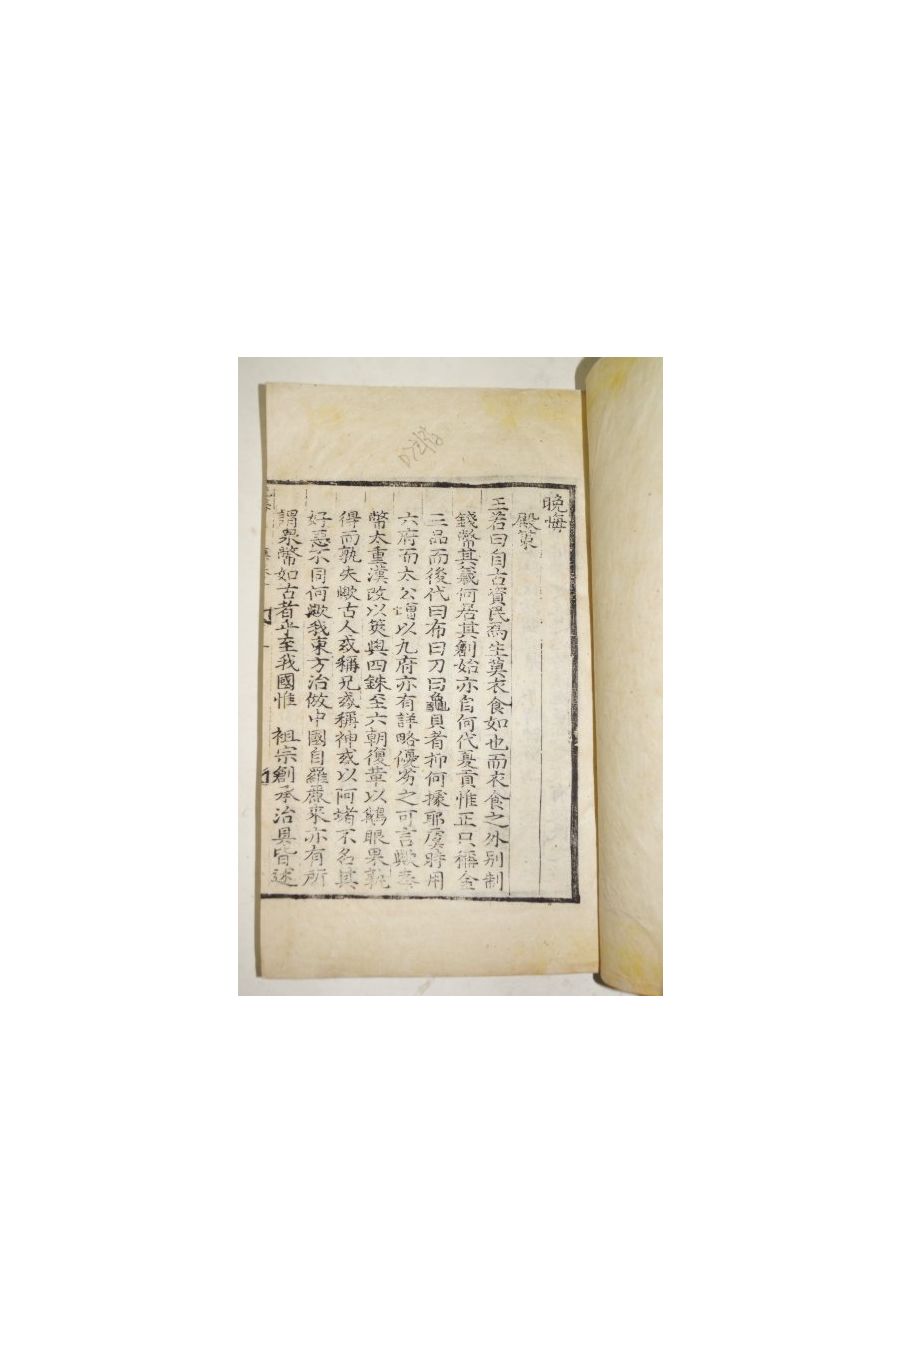 晚悔
殿策
王若曰自古資民爲生莫衣食如也而衣食之外別制
錢幣其義何居其創始亦自何代夏貢惟正只稱金
三品而後代曰布曰刀曰龜貝者抑何據耶虞時用
六府而太公增以九府亦有詳略優劣之可言歟秦
幣太重漢改以莢與四銖至六朝復革以鵝眼果孰
得而孰失歟古人或稱兄或稱神或以阿堵不名其
好惡不同何歟我東方治倣中國自羅麗來亦有所
謂泉幣如古者乎至我國惟 祖宗創承治具皆述